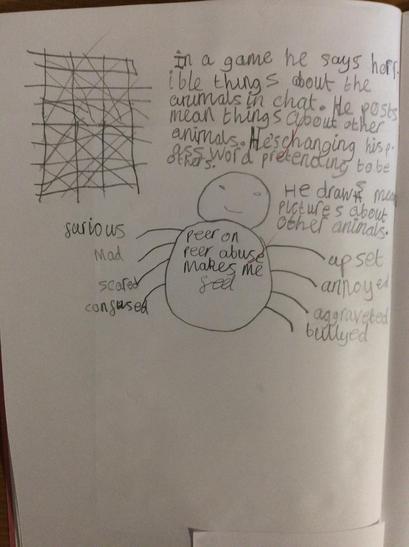 In a game he says horr-
ible things about the
animals in chat. He posts
mean things about other
animals. He's changing his p-
ass word pretending to be
others.
He draws mean
pictures about
other animals.
peer on
peer abuse
makes me
feel
furious
Mad
scared
confused
upset
annoyed
aggraveted
bullyed